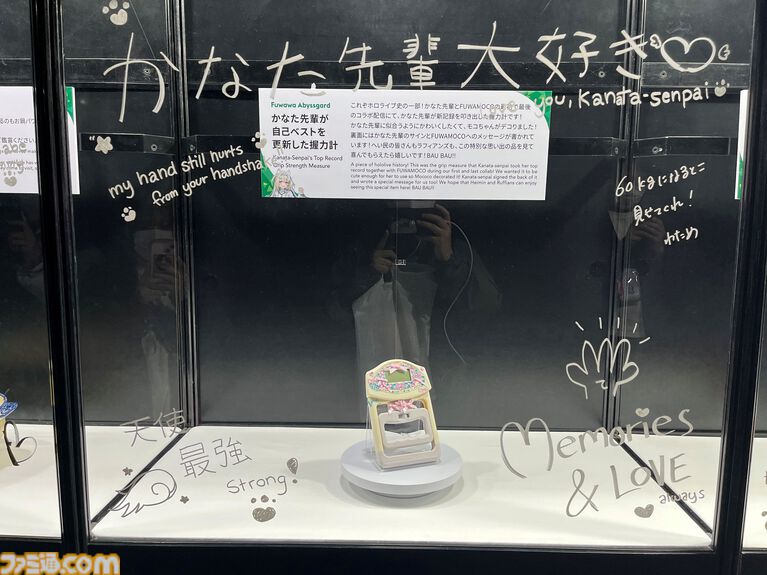 かなた先輩大好き
you, Kanata-senpai
Fuwawa Abyssgard
かなた先輩が
自己ベストを
更新した握力計
Kanata-Senpai's Top Record
Grip Strength Measure
これぞホロライブ史の一部！かなた先輩とFUWAMOCOの
最後
のコラボ配信にて、かなた先輩が新記録を叩き出した握力計です！
かなた先輩に似合うようにかわいくしたくて、モコちゃんがデコりました！
裏面にはかなた先輩のサインとFUWAMOCOへのメッセージが書かれて
います！へい民の皆さんもラフィアンズも、この特別な思い出の品を見て
喜んでもらえたら嬉しいです！BAU BAU!!
A piece of hololive history! This was the grip measure that Kanata-senpai took her top
record together with FUWAMOCO during our first and last collab! We wanted it to be
cute enough for her to use so Mococo decorated it! Kanata-senpai signed the back of it
and wrote a special message for us too! We hope that Heimin and Ruffians can enjoy
seeing this special item here! BAU BAU!!
my hand still hurts
from your handsha
60kgになるとこ
見せてくれ！
わため
天使
最強
strong!
Memories
& LOVE
always
ファミ通.com